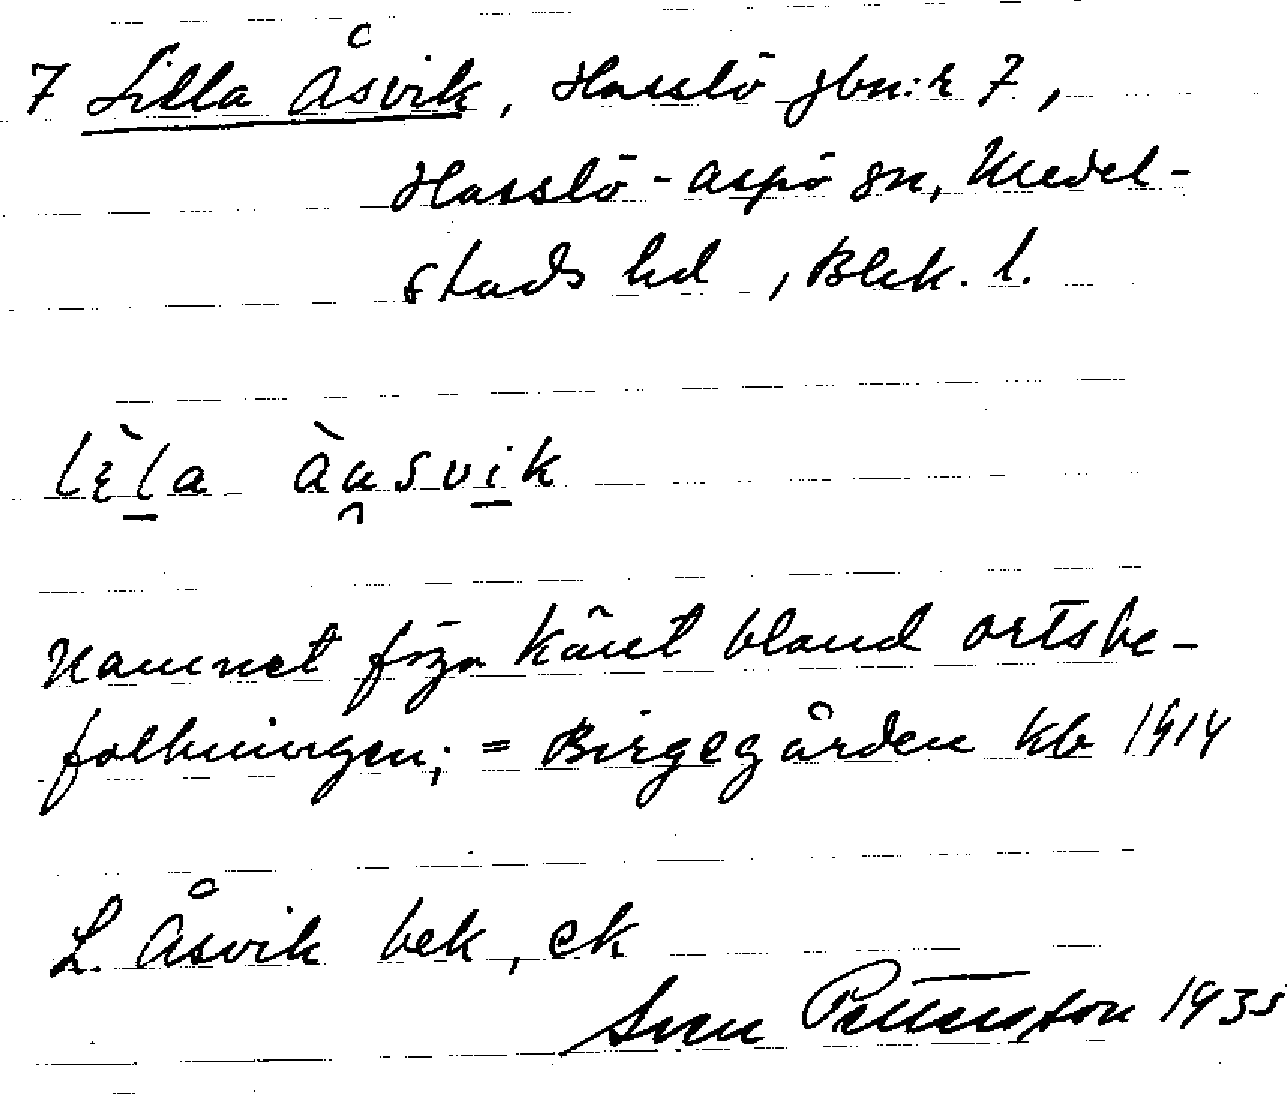 7 Lilla Åsvik, Hasslö jbn:r 7,
Hasslö-Aspö sn, Medel-
stads hd, Blek. l.
lɛ̀la àu̯svik
Namnet föga känt bland ortsbe-
folkningen; = Birgegården kb 1914
L. Åsvik bek, ek
Sven Pettersson 1935